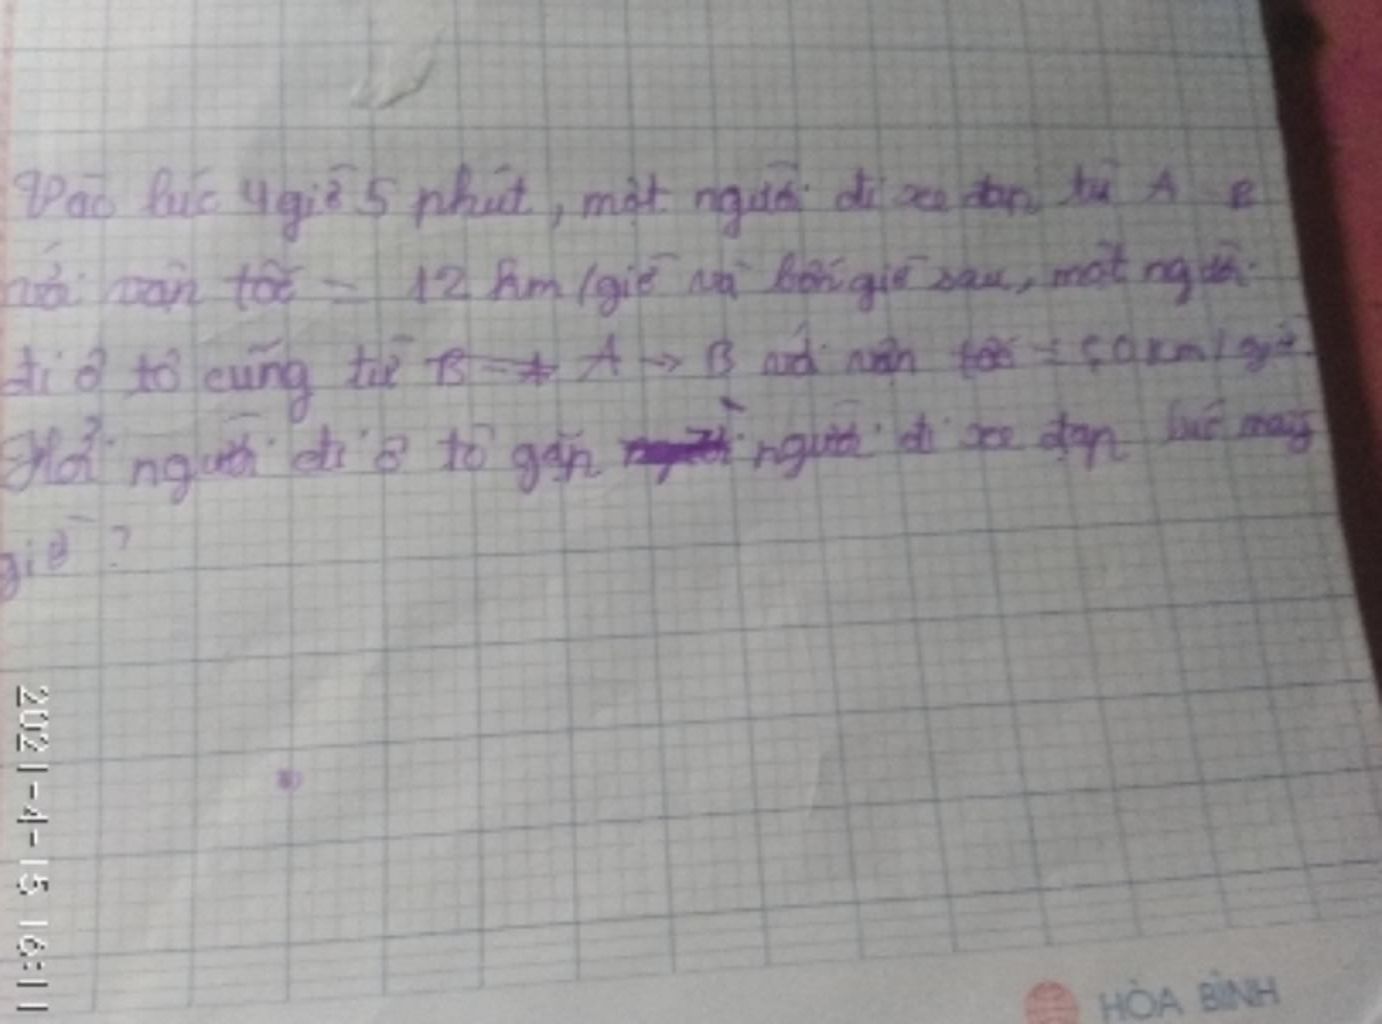 Vào lúc 4 giờ 5 phút, một người đi xe đạp từ A B
với vận tốc = 12 km/giờ và giờ sau, một người
đi ô tô cũng từ A → B với vận tốc = km/giờ.
Hỏi người đi ô tô gặp người đi xe đạp lúc mấy
giờ?
2021-4-15 16:11
HÒA BÌNH